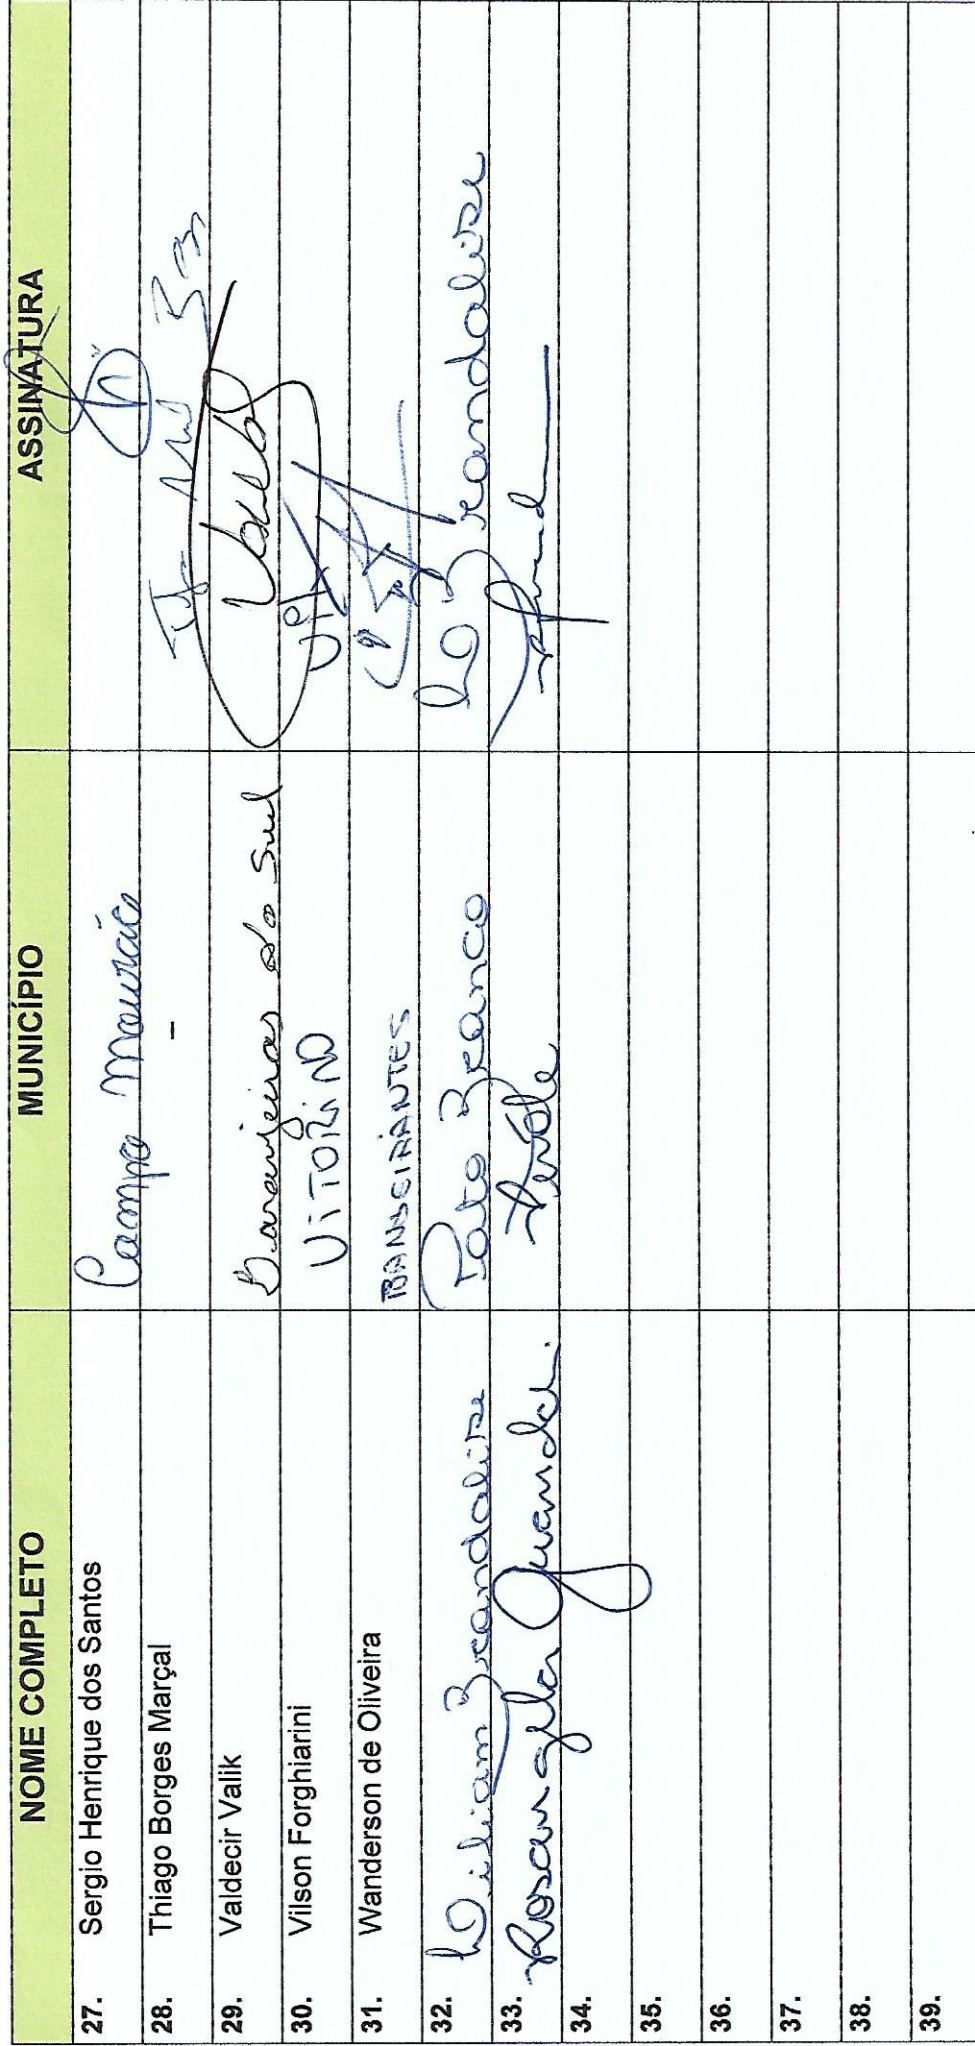 NOME COMPLETO MUNICÍPIO ASSINATURA
27. Sergio Henrique dos Santos Campo Mourão
28. Thiago Borges Marçal -
29. Valdecir Valik Laranjeiras do Sul
30. Vilson Forghiarini ViTORiNO
31. Wanderson de Oliveira BANDEIRANTES
32. Wiliam Brandalise Pato Branco W Brandalise
33. Rosangela Guandalin Perola
34.
35.
36.
37.
38.
39.